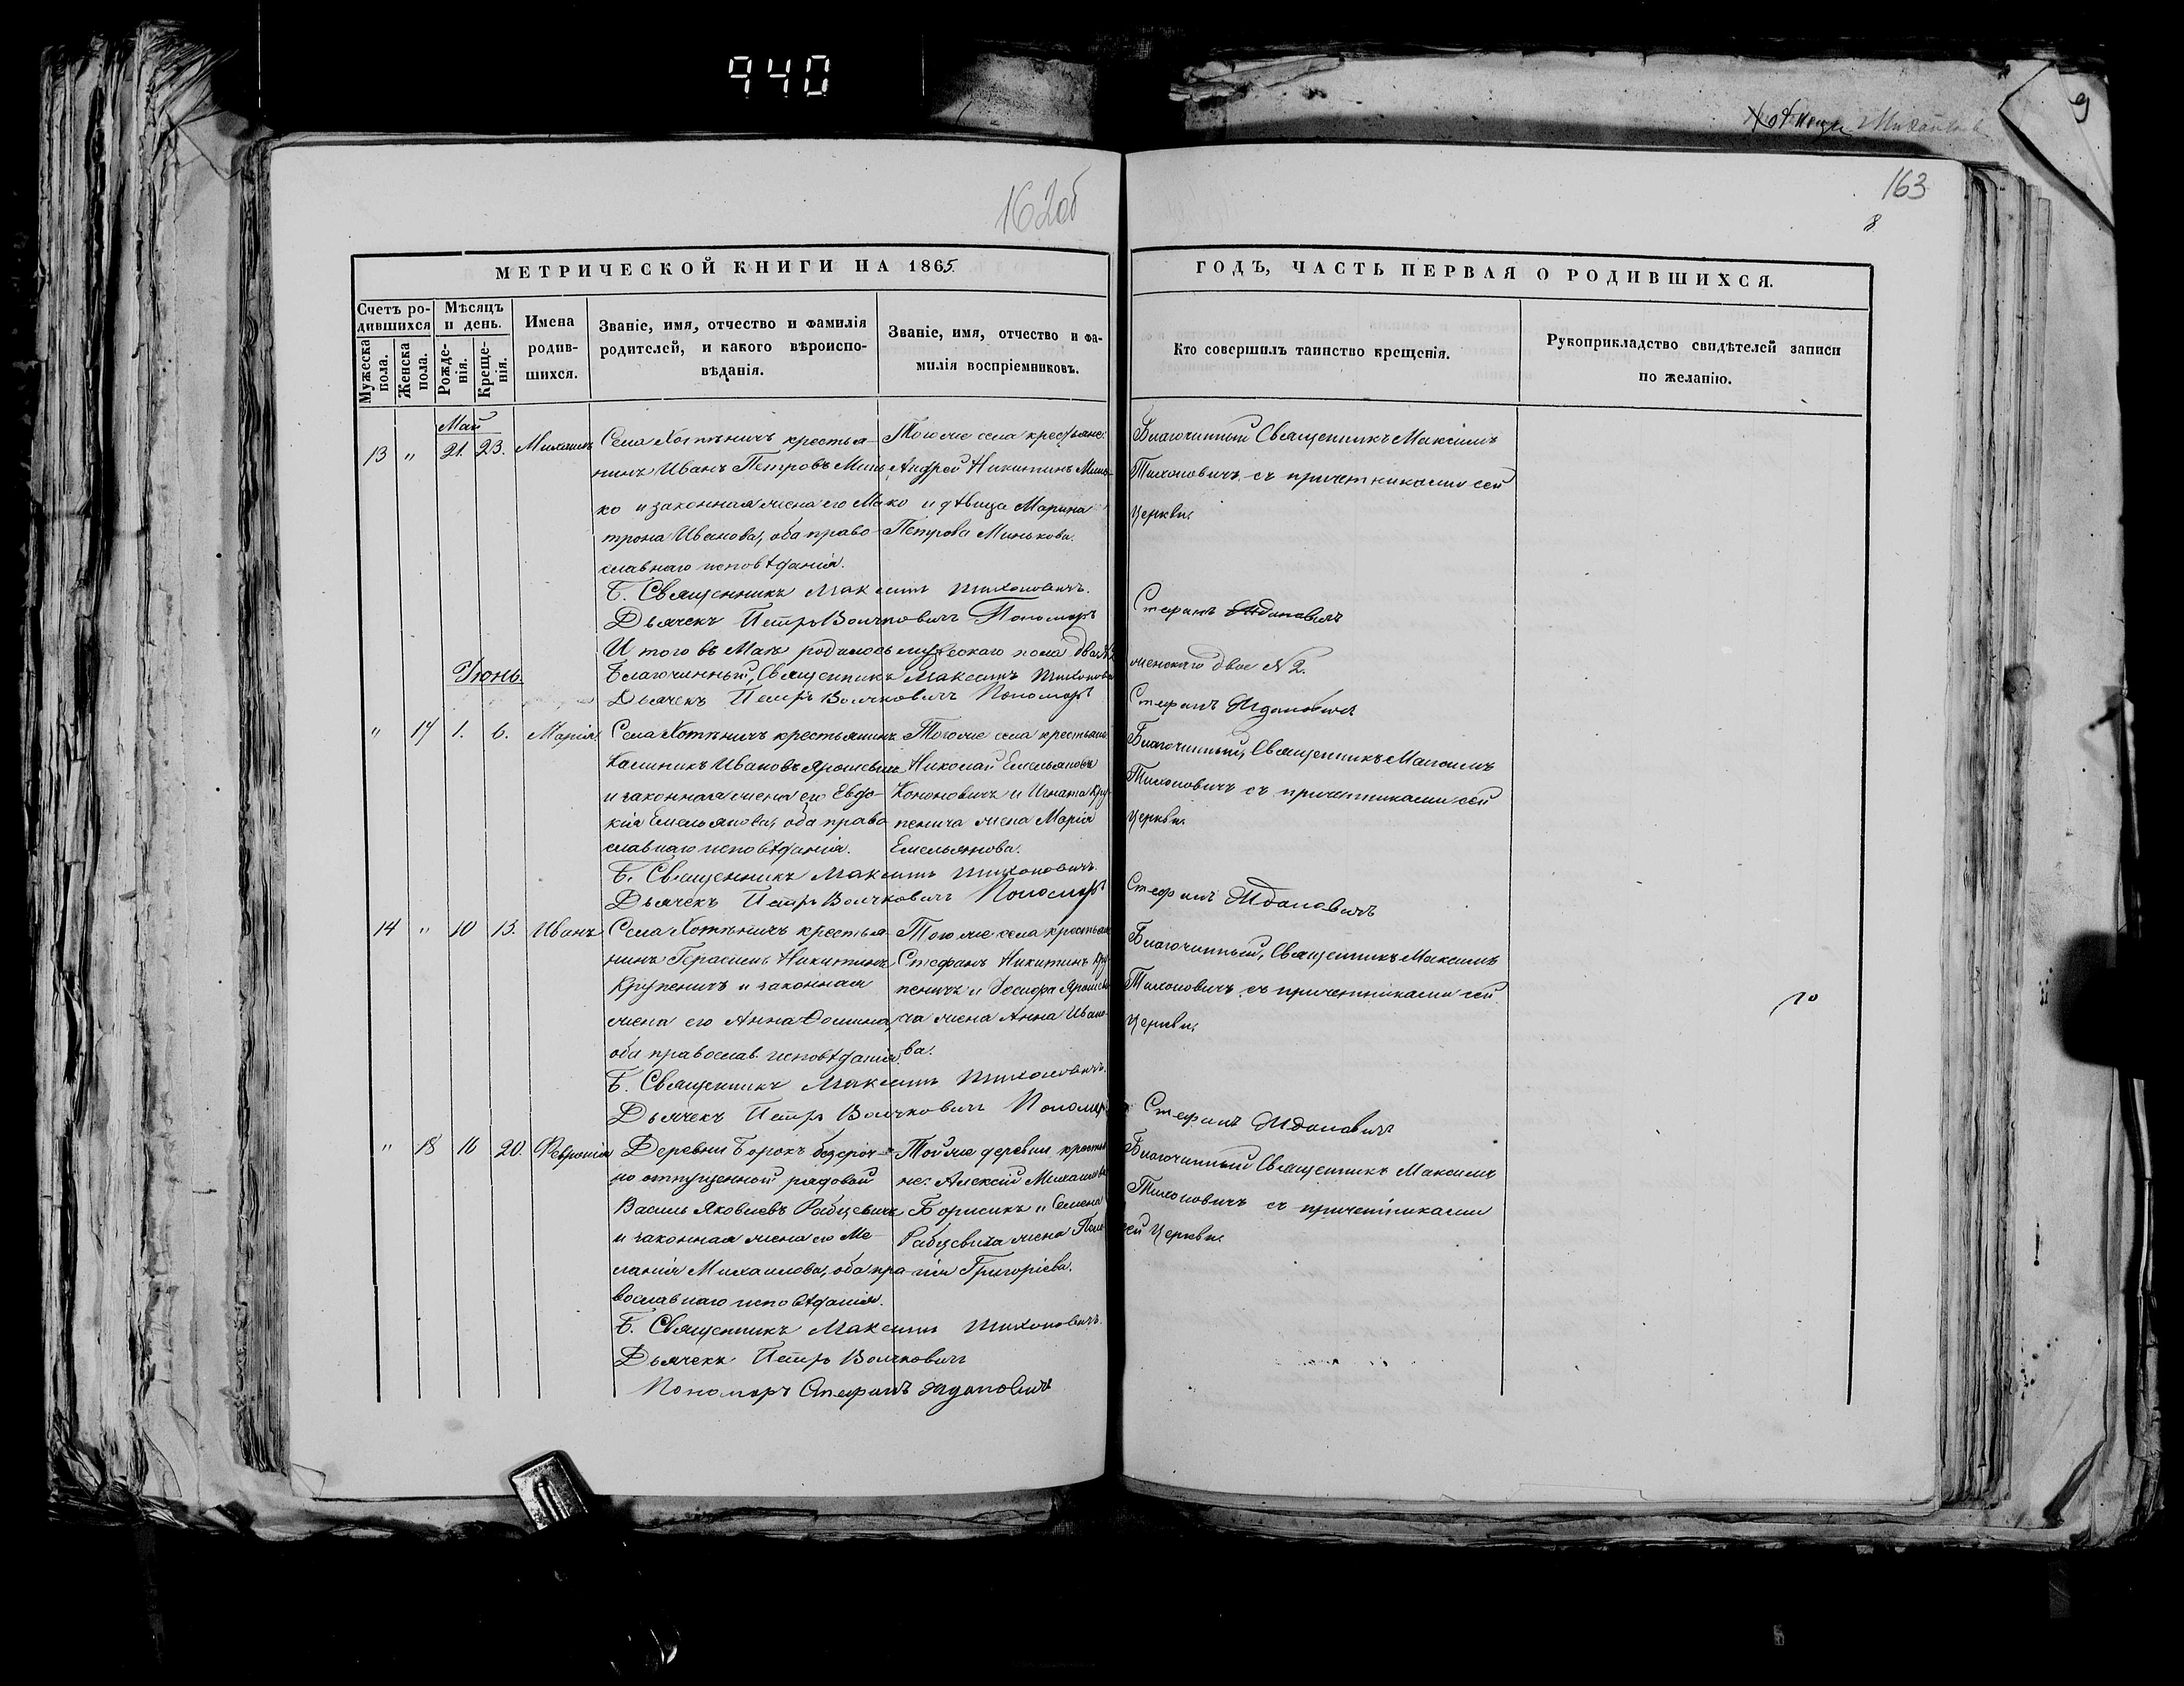 940
9
162об
163
8
МЕТРИЧЕСКОЙ КНИГИ НА 1865.
ГОДЪ, ЧАСТЬ ПЕРВАЯ О РОДИВШИХСЯ.
Счетъ ро-
дившихся
Мужеска
пола.
Женска
пола.
Мѣсяцъ
и день.
Рожде-
нія.
Креще-
нія.
Имена
родив-
шихся.
Званіе, имя, отчество и фамилія
родителей, и какого вѣроиспо-
вѣданія.
Званіе, имя, отчество и фа-
милія воспріемниковъ.
Кто совершилъ таинство крещенія.
Рукоприкладство свидѣтелей записи
по желанію.
Май
13 " 21. 23. Михаилъ
Села Хотѣничъ крестья-
нинъ Иванъ Петровъ Минь
ко и законная жена его Ма
трона Иванова, оба право
славнаго исповѣданія.
Тогоже села крестьяне:
Андрей Никитинъ Минь-
ко и дѣвица Марина
Петрова Минькова.
Благочинный Священникъ Максимъ
Тихоновичъ съ причетниками сей
Церкви.
Б. Священникъ Максимъ Тихоновичъ.
Дьячекъ Петръ Волчковичъ Пономарь
Стефанъ Ждановичъ
Итого въ Маѣ родилось мужескаго пола двое №2
женскаго двое №2.
Благочинный, Священникъ Максимъ Тихонович
Дьячекъ Петръ Волчковичъ Пономарь
Стефанъ Ждановичъ
Іюнь.
" 17 1. 6. Марія.
Села Хотѣничъ крестьянинъ
Калиникъ Ивановъ Ярошевичъ
и законная жена его Евдо-
кія Емельянова, оба право
славнаго исповѣданія.
Тогоже села крестьяне:
Николай Емельяновъ
Кононовичъ и Игната Кру-
пенича жена Марія
Емельянова.
Благочинный, Священникъ Максимъ
Тихоновичъ съ причетниками сей
Церкви.
Б. Священникъ Максимъ Тихоновичъ.
Дьячекъ Петръ Волчковичъ Пономарь
Стефанъ Ждановичъ
14 " 10 13. Иванъ
Села Хотѣничъ крестья-
нинъ Герасимъ Никитинъ
Крупеничъ и законная
жена его Анна Ѳомина,
оба православ. исповѣданія.
Тогоже села крестьяне
Стефанъ Никитинъ Кру
пеничъ и Іосифа Ярошеви
ча жена Анна Ивано-
ва.
Благочинный, Священникъ Максимъ
Тихоновичъ съ причетниками сей
Церкви.
Б. Священникъ Максимъ Тихоновичъ.
Дьячекъ Петръ Волчковичъ Пономарь
Стефанъ Ждановичъ
" 18 16 20. Февронія
Деревни Борокъ безсроч-
но отпущенной рядовой
Василь Яковлевъ Рабцевичъ
и законная жена его Ме-
ланія Михаилова, оба пра
вославнаго исповѣданія.
Тойже деревни крестья
не: Алексій Михаиловъ
Борисикъ и Семена
Рабцевича жена Пела-
гія Григоріева.
Благочинный Священникъ Максимъ
Тихоновичъ съ причетниками
сей Церкви.
Б. Священникъ Максимъ Тихоновичъ.
Дьячекъ Петръ Волчковичъ
Пономарь Стефанъ Ждановичъ